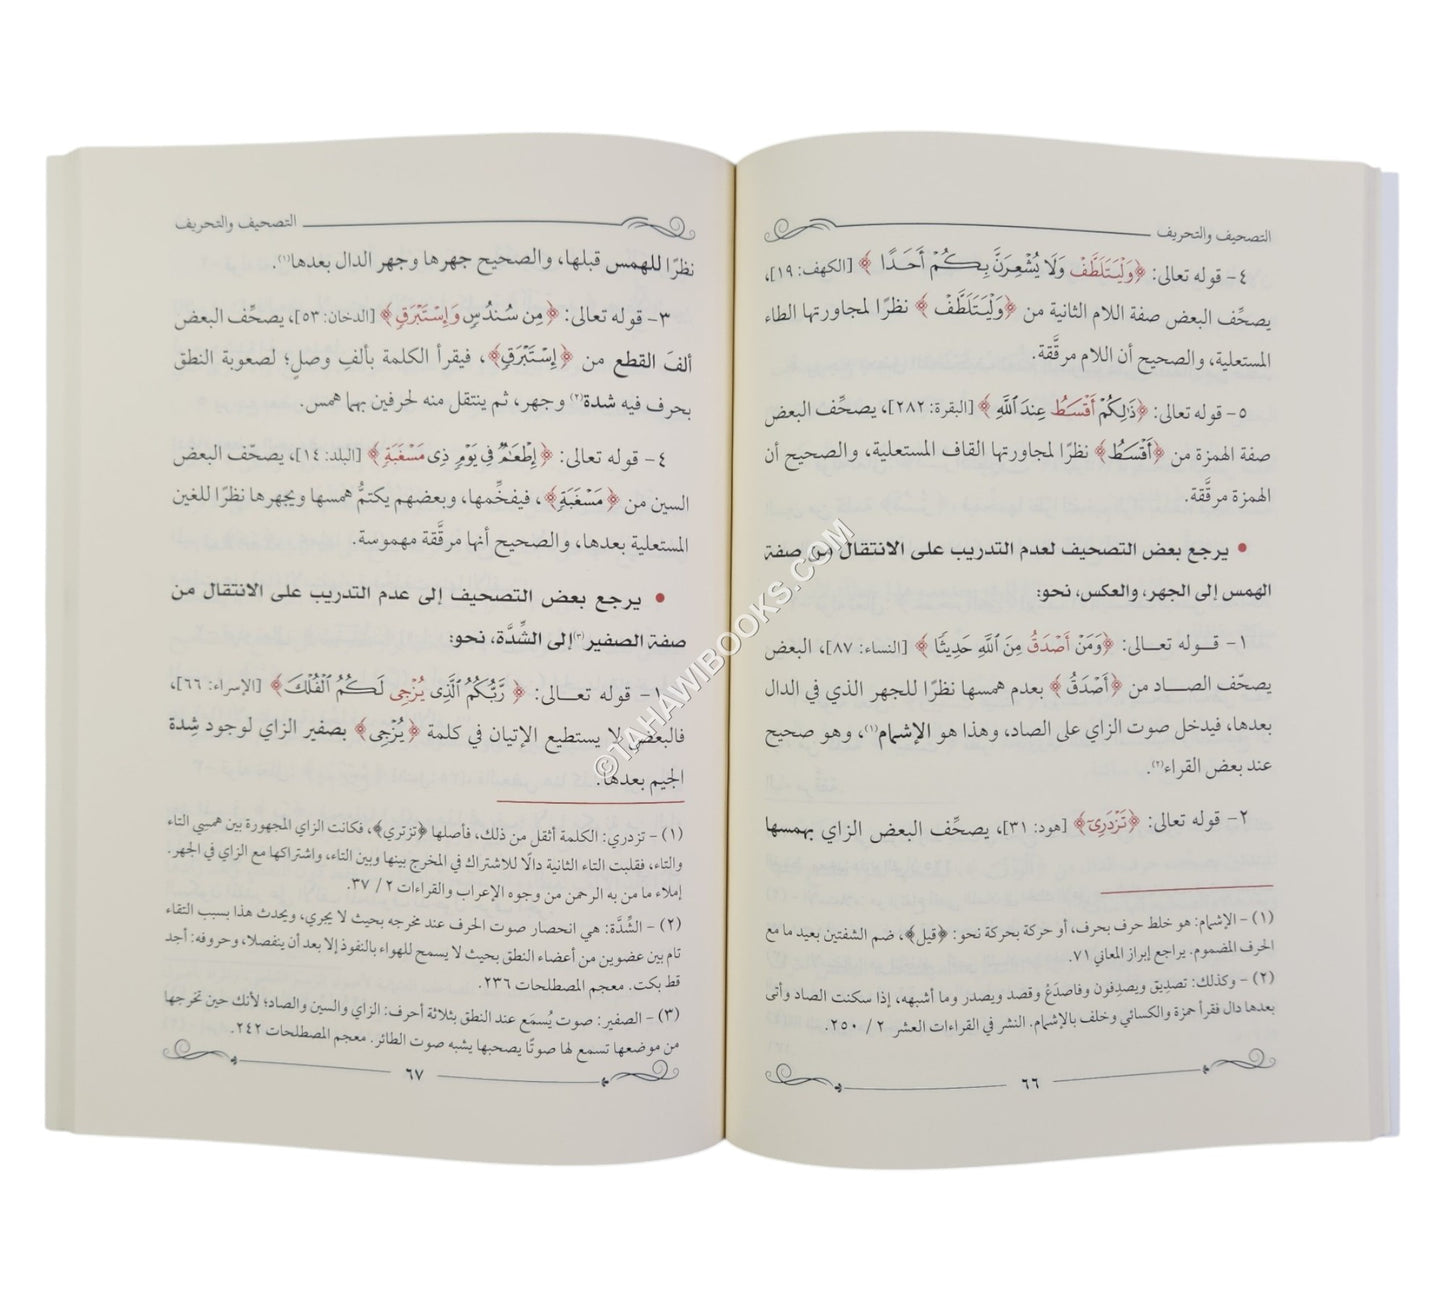 التصحيف والتحريف
٤- قوله تعالى: ﴿وَلْيَتَلَطَّفْ وَلَا يُشْعِرَنَّ بِكُمْ أَحَدًا﴾ [الكهف: ١٩]،
يصحِّف البعض صفة اللام الثانية من ﴿وَلْيَتَلَطَّفْ﴾ نظرًا لمجاورتها الطاء
المستعلية، والصحيح أن اللام مرقَّقة.
٥- قوله تعالى: ﴿ذَلِكُمْ أَقْسَطُ عِندَ اللَّهِ﴾ [البقرة: ٢٨٢]، يصحِّف البعض
صفة الهمزة من ﴿أَقْسَطُ﴾ نظرًا لمجاورتها القاف المستعلية، والصحيح أن
الهمزة مرقَّقة.
• يرجع بعض التصحيف لعدم التدريب على الانتقال من صفة
الهمس إلى الجهر، والعكس، نحو:
١- قوله تعالى: ﴿وَمَنْ أَصْدَقُ مِنَ اللَّهِ حَدِيثًا﴾ [النساء: ٨٧]، البعض
يصحّف الصاد من ﴿أَصْدَقُ﴾ بعدم همسها نظرًا للجهر الذي في الدال
بعدها، فيدخل صوت الزاي على الصاد، وهذا هو الإشمام(١)، وهو صحيح
عند بعض القراء(٢).
٢- قوله تعالى: ﴿تَزْدَرِي﴾ [هود: ٣١]، يصحِّف البعض الزاي بهمسها
(١) - الإشمام: هو خلط حرف بحرف، أو حركة بحركة نحو: ﴿قيل﴾، ضم الشفتين بعيد ما مع
الحرف المضموم. يراجع إبراز المعاني ٧١.
(٢) - وكذلك: تصديق ويصدفون وفاصدَعْ وقصد ويصدر وما أشبهه، إذا سكنت الصاد وأتى
بعدها دال فقرأ حمزة والكسائي وخلف بالإشمام. النشر في القراءات العشر ٢ / ٢٥٠.
٦٦
التصحيف والتحريف
نظرًا للهمس قبلها، والصحيح جهرها وجهر الدال بعدها(١).
٣- قوله تعالى: ﴿مِن سُندُسٍ وَإِسْتَبْرَقٍ﴾ [الدخان: ٥٣]، يصحِّف البعض
ألفَ القطع من ﴿إِسْتَبْرَقٍ﴾، فيقرأ الكلمة بألفِ وصلٍ؛ لصعوبة النطق
بحرف فيه شدة(٢) وجهر، ثم ينتقل منه لحرفين بهما همس.
٤- قوله تعالى: ﴿إِطْعَمٌ فِي يَوْمٍ ذِي مَسْغَبَةٍ﴾ [البلد: ١٤]، يصحّف البعض
السين من ﴿مَسْغَبَةٍ﴾، فيفخِّمها، وبعضهم يكتمُّ همسها ويجهرها نظرًا للغين
المستعلية بعدها، والصحيح أنها مرقَّقة مهموسة.
• يرجع بعض التصحيف إلى عدم التدريب على الانتقال من
صفة الصفير(٣) إلى الشِّدَّة، نحو:
١- قوله تعالى: ﴿رَّبُّكُمُ الَّذِي يُزْجِي لَكُمُ الْفُلْكَ﴾ [الإسراء: ٦٦]،
فالبعض لا يستطيع الإتيان في كلمة ﴿يُزْجِي﴾ بصفير الزاي لوجود شِدة
الجيم بعدها.
(١) - تزدري: الكلمة أثقل من ذلك، فأصلها ﴿تزتري﴾، فكانت الزاي المجهورة بين همسِي التاء
والتاء، فقلبت التاء الثانية دالًا للاشتراك في المخرج بينها وبين التاء، واشتراكها مع الزاي في الجهر.
إملاء ما من به الرحمن من وجوه الإعراب والقراءات ٢ / ٣٧.
(٢) - الشِّدَّة: هي انحصار صوت الحرف عند مخرجه بحيث لا يجري، ويحدث هذا بسبب التقاء
تام بين عضوين من أعضاء النطق بحيث لا يسمح للهواء بالنفوذ إلا بعد أن ينفصلا، وحروفه: أجد
قط بكت. معجم المصطلحات ٢٣٦.
(٣) - الصفير: صوت يُسمَع عند النطق بثلاثة أحرف: الزاي والسين والصاد؛ لأنك حين تخرجها
من موضعها تسمع لها صوتًا يصحبها يشبه صوت الطائر. معجم المصطلحات ٢٤٢.
٦٧
©TAHAWIBOOKS.COM